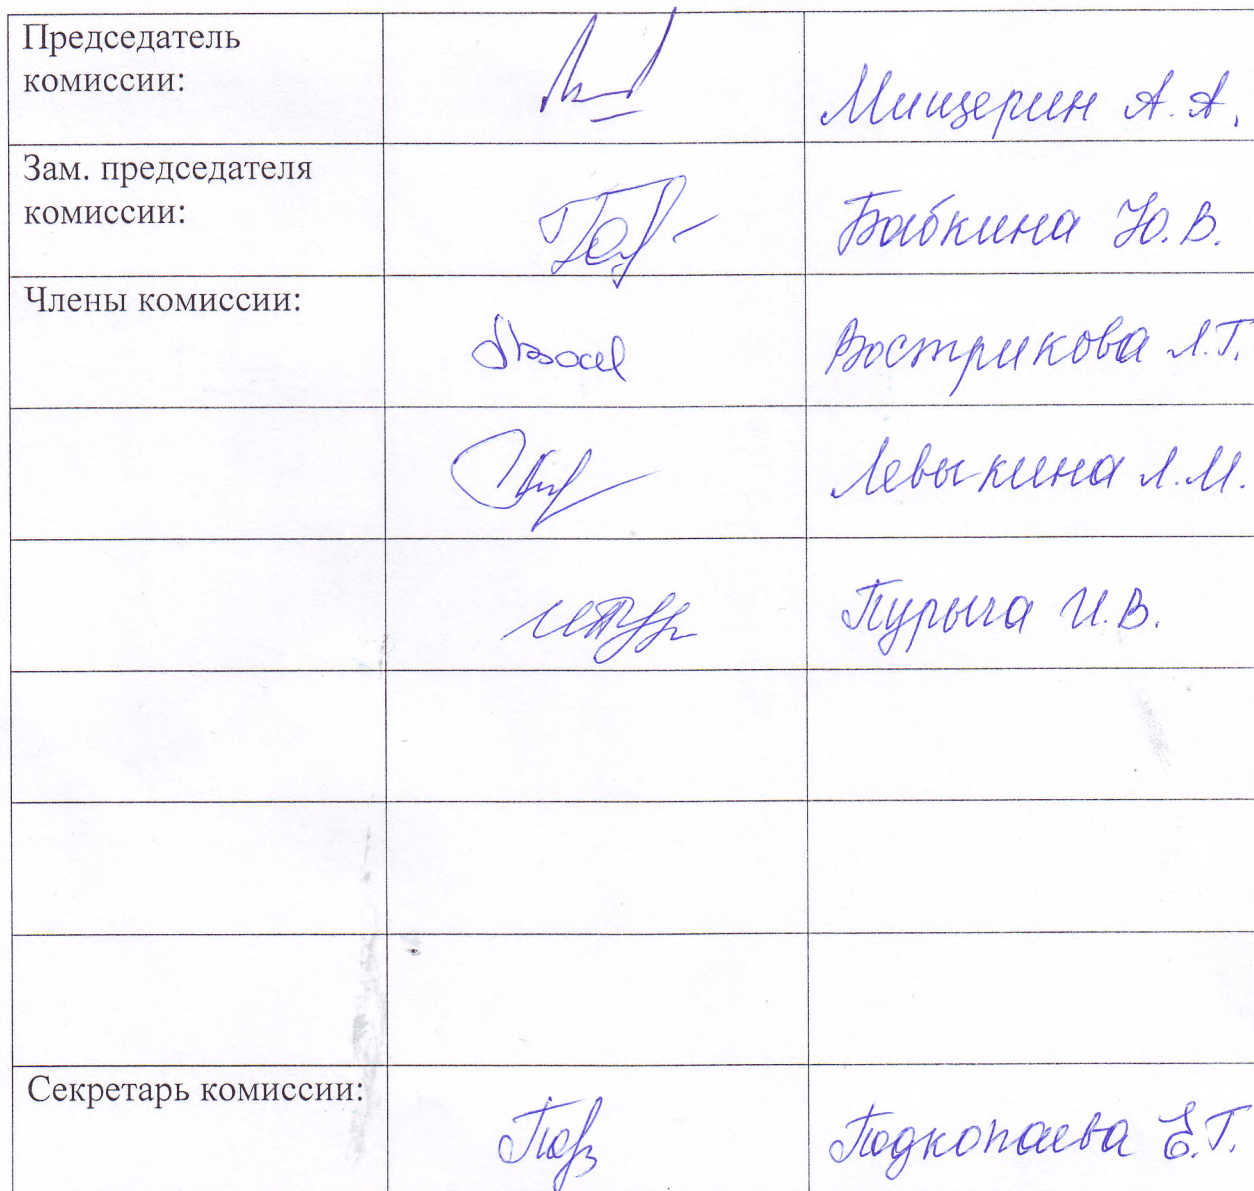 Председатель
комиссии:
Мищерин А. А.
Зам. председателя
комиссии:
Бабкина Ю. В.
Члены комиссии:
Вострикова Л. Г.
Левыкина Л. М.
Пурыга И. В.
Секретарь комиссии:
Подкопаева Е. Г.